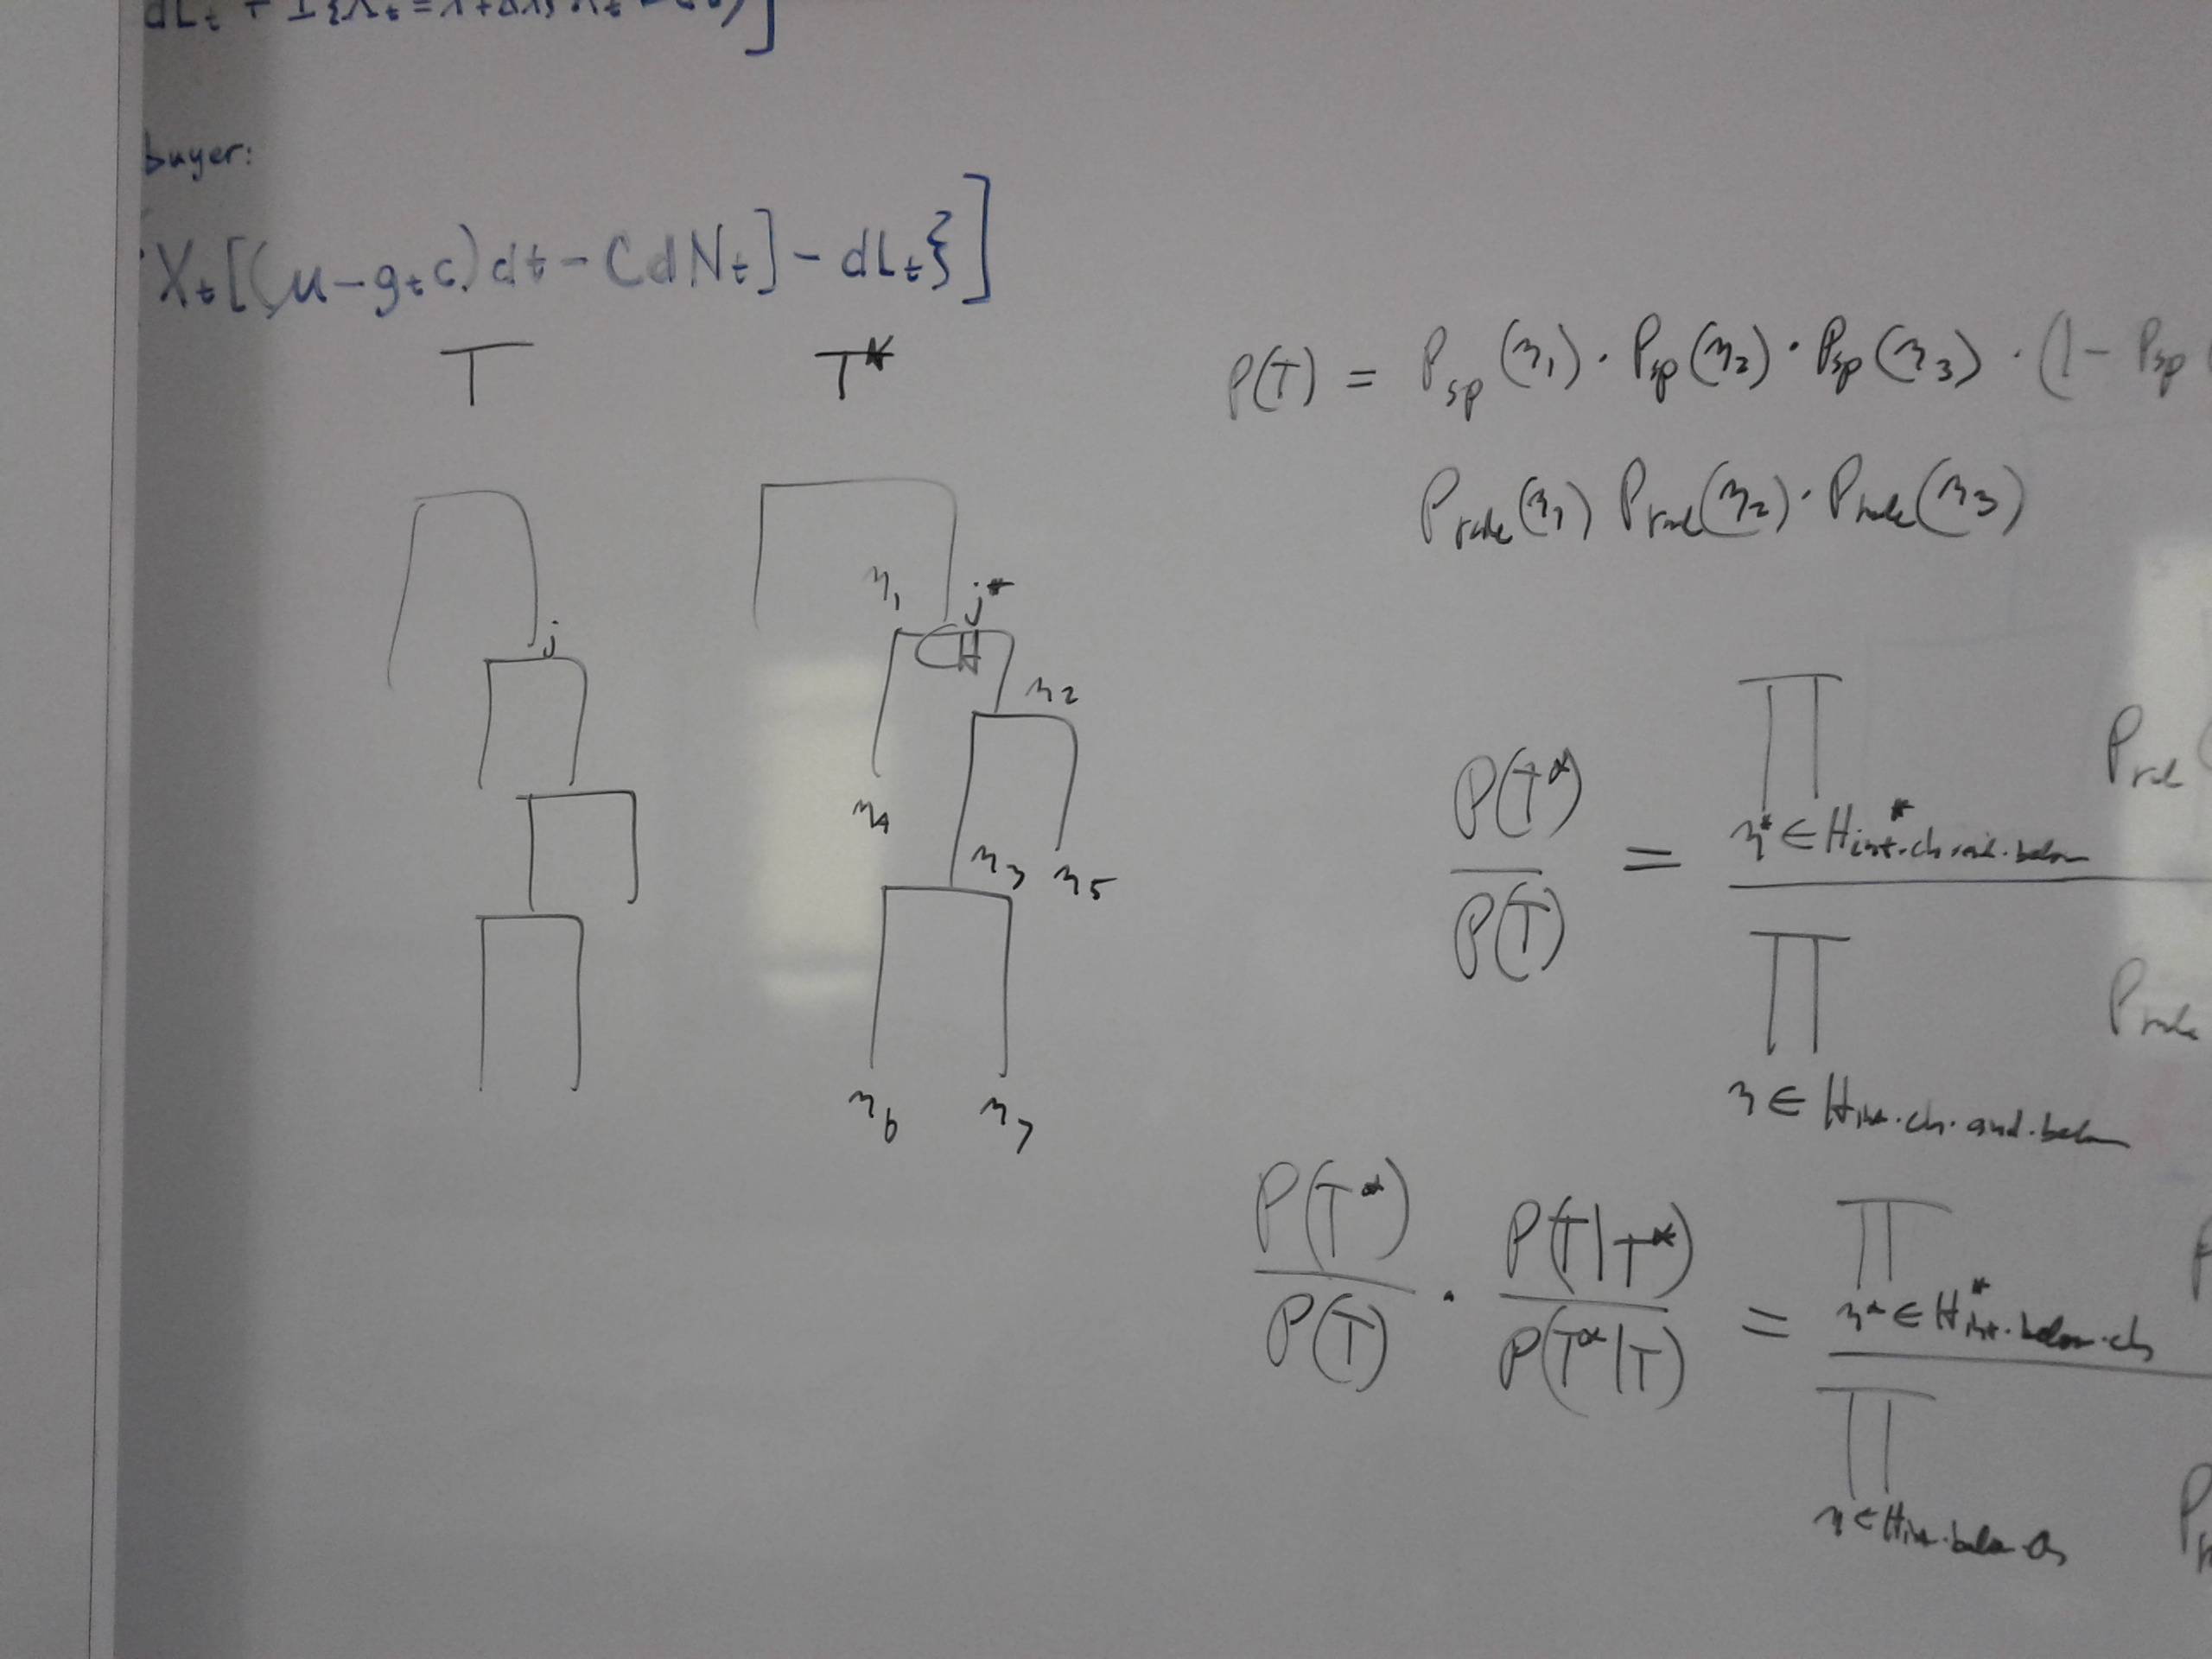 buyer:
X_t[(μ-g_t c)dt - CdN_t] - dL_t}]
T T*
j
η_1 j*
η_2
η_4
η_3 η_5
η_6 η_7
P(T) = P_sp(η_1) · P_sp(η_2) · P_sp(η_3) · (1 - P_sp(
P_rule(η_1) P_rule(η_2) · P_rule(η_3)
P(T*) / P(T) = ∏ η* ∈ H*_int.ch.and.below P_rul / ∏ η ∈ H_int.ch.and.below P_rule
P(T*) / P(T) · P(T|T*) / P(T*|T) = ∏ η* ∈ H*_int.below.ch / ∏ η ∈ H_int.below.ch